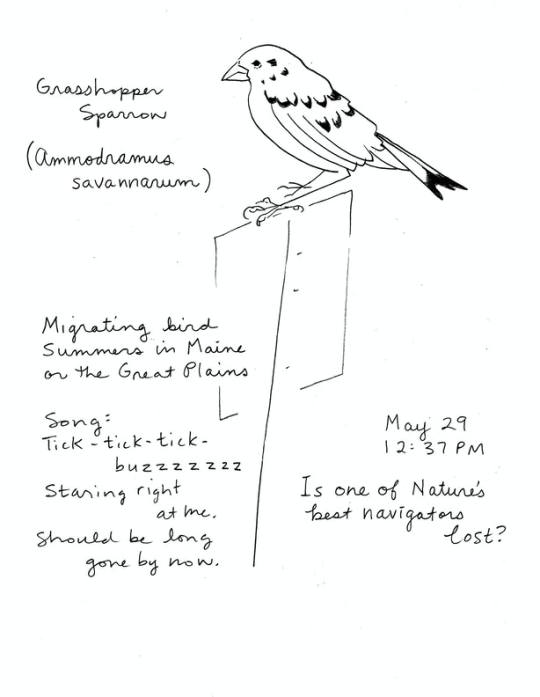 Grasshopper
Sparrow
(Ammodramus
savannarum)
Migrating bird
Summers in Maine
or the Great Plains
Song:
Tick-tick-tick-
buzzzzzzz
Staring right
at me.
Should be long
gone by now.
May 29
12:37 PM
Is one of Nature's
best navigators
lost?